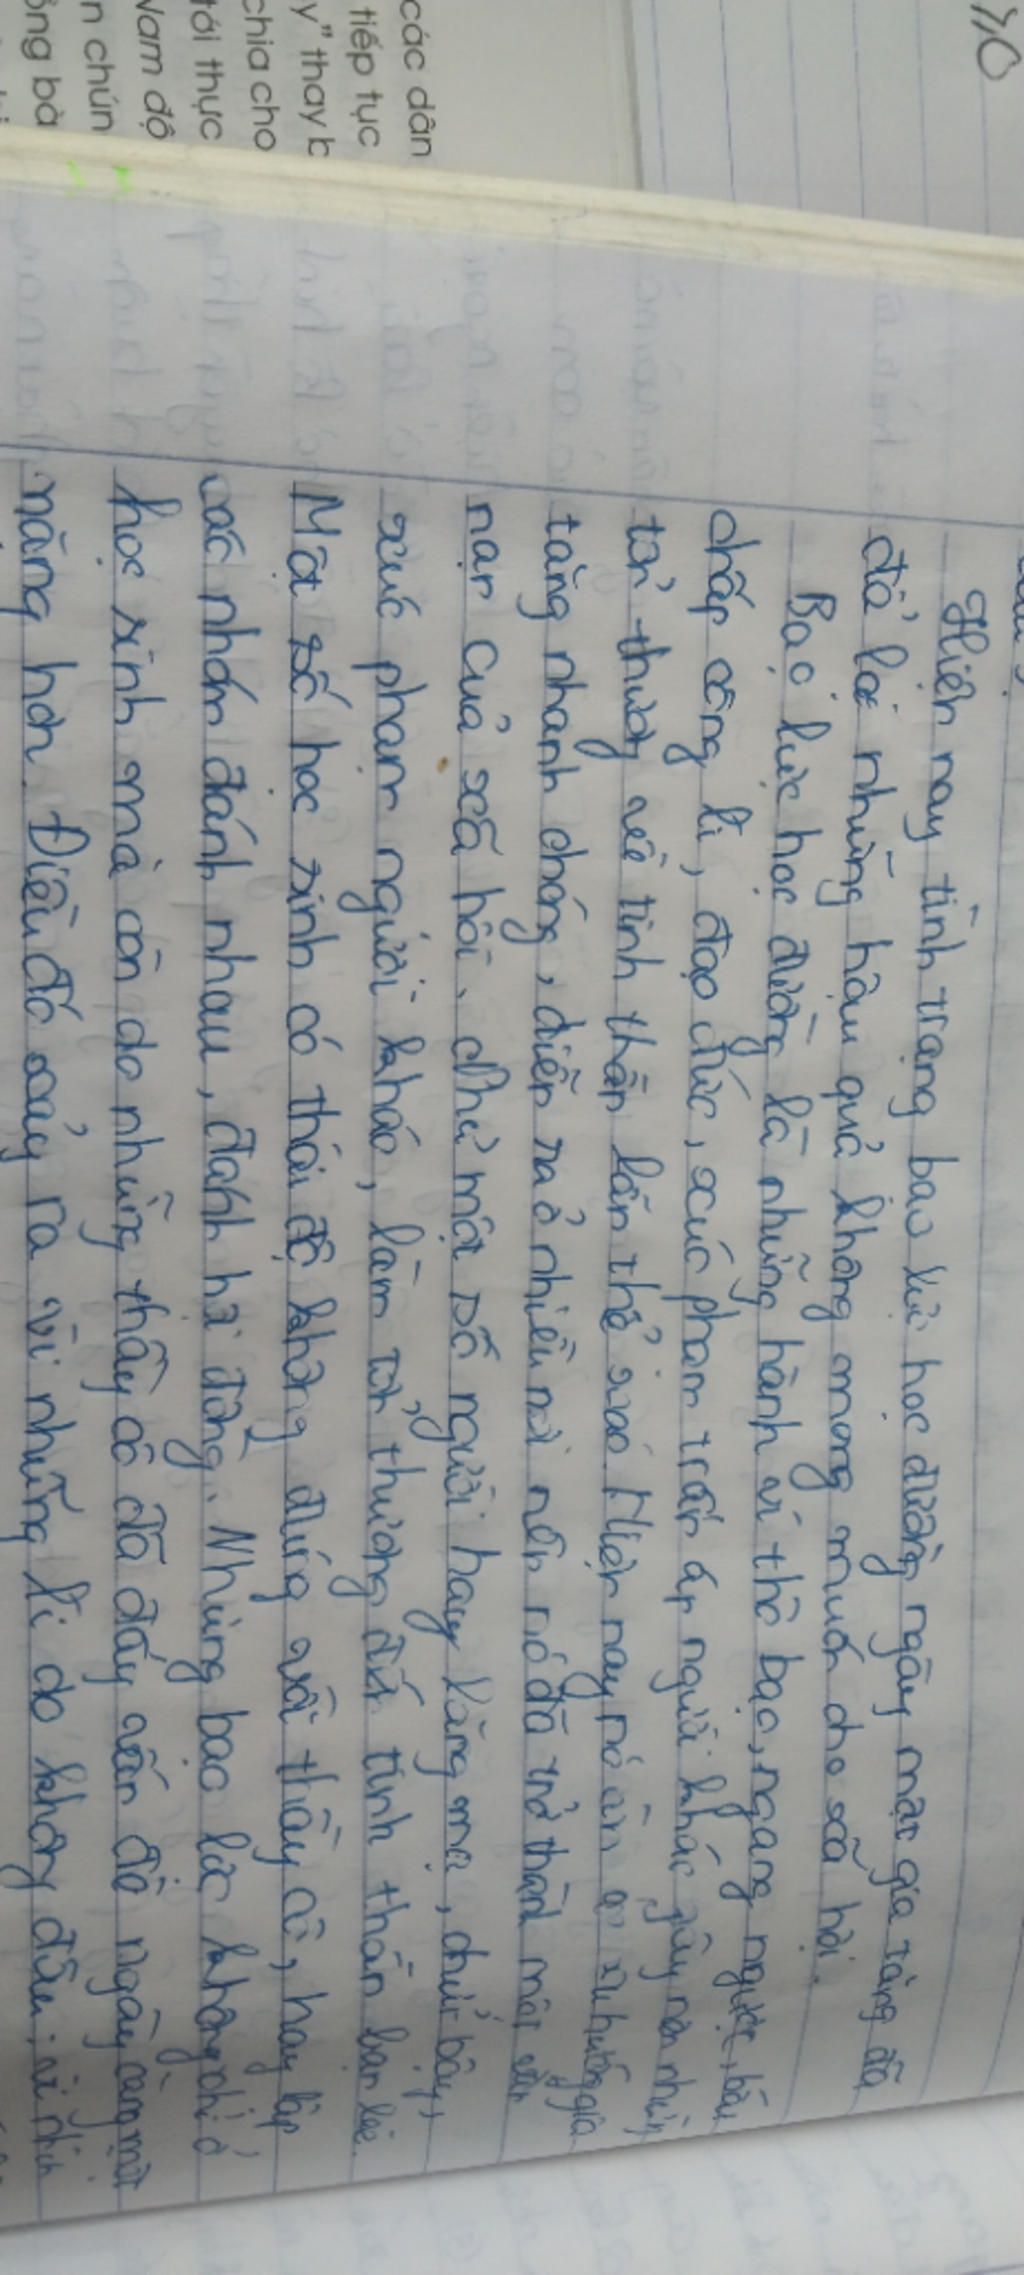 γ,0
các dân
tiếp tục
y" thay b
chia cho
tới thực
Nam độ
n chún
ông bà
Hiện nay tình trạng bạo lực học đường ngày một gia tăng đã
để lại những hậu quả không mong muốn cho xã hội.
Bạo lực học đường là những hành vi thô bạo, ngang ngược, bất
chấp công lí, đạo đức, xúc phạm trấn áp người khác gây nên những
tổn thương về tinh thần lẫn thể xác. Hiện nay nó có xu hướng gia
tăng nhanh chóng, diễn ra ở nhiều nơi nên nó đã trở thành một vấn
nạn của xã hội. Như một số người hay lăng mạ, chửi bậy,
xúc phạm người khác, làm tổn thương đến tinh thần bạn bè.
Một số học sinh có thái độ không đúng với thầy cô, hay lập
các nhóm đánh nhau, đánh hội đồng. Nhưng bạo lực không chỉ ở
học sinh mà còn do những thầy cô đã đẩy vấn đề ngày càng một
nặng hơn. Điều đó xảy ra vì những lí do không đâu: vì